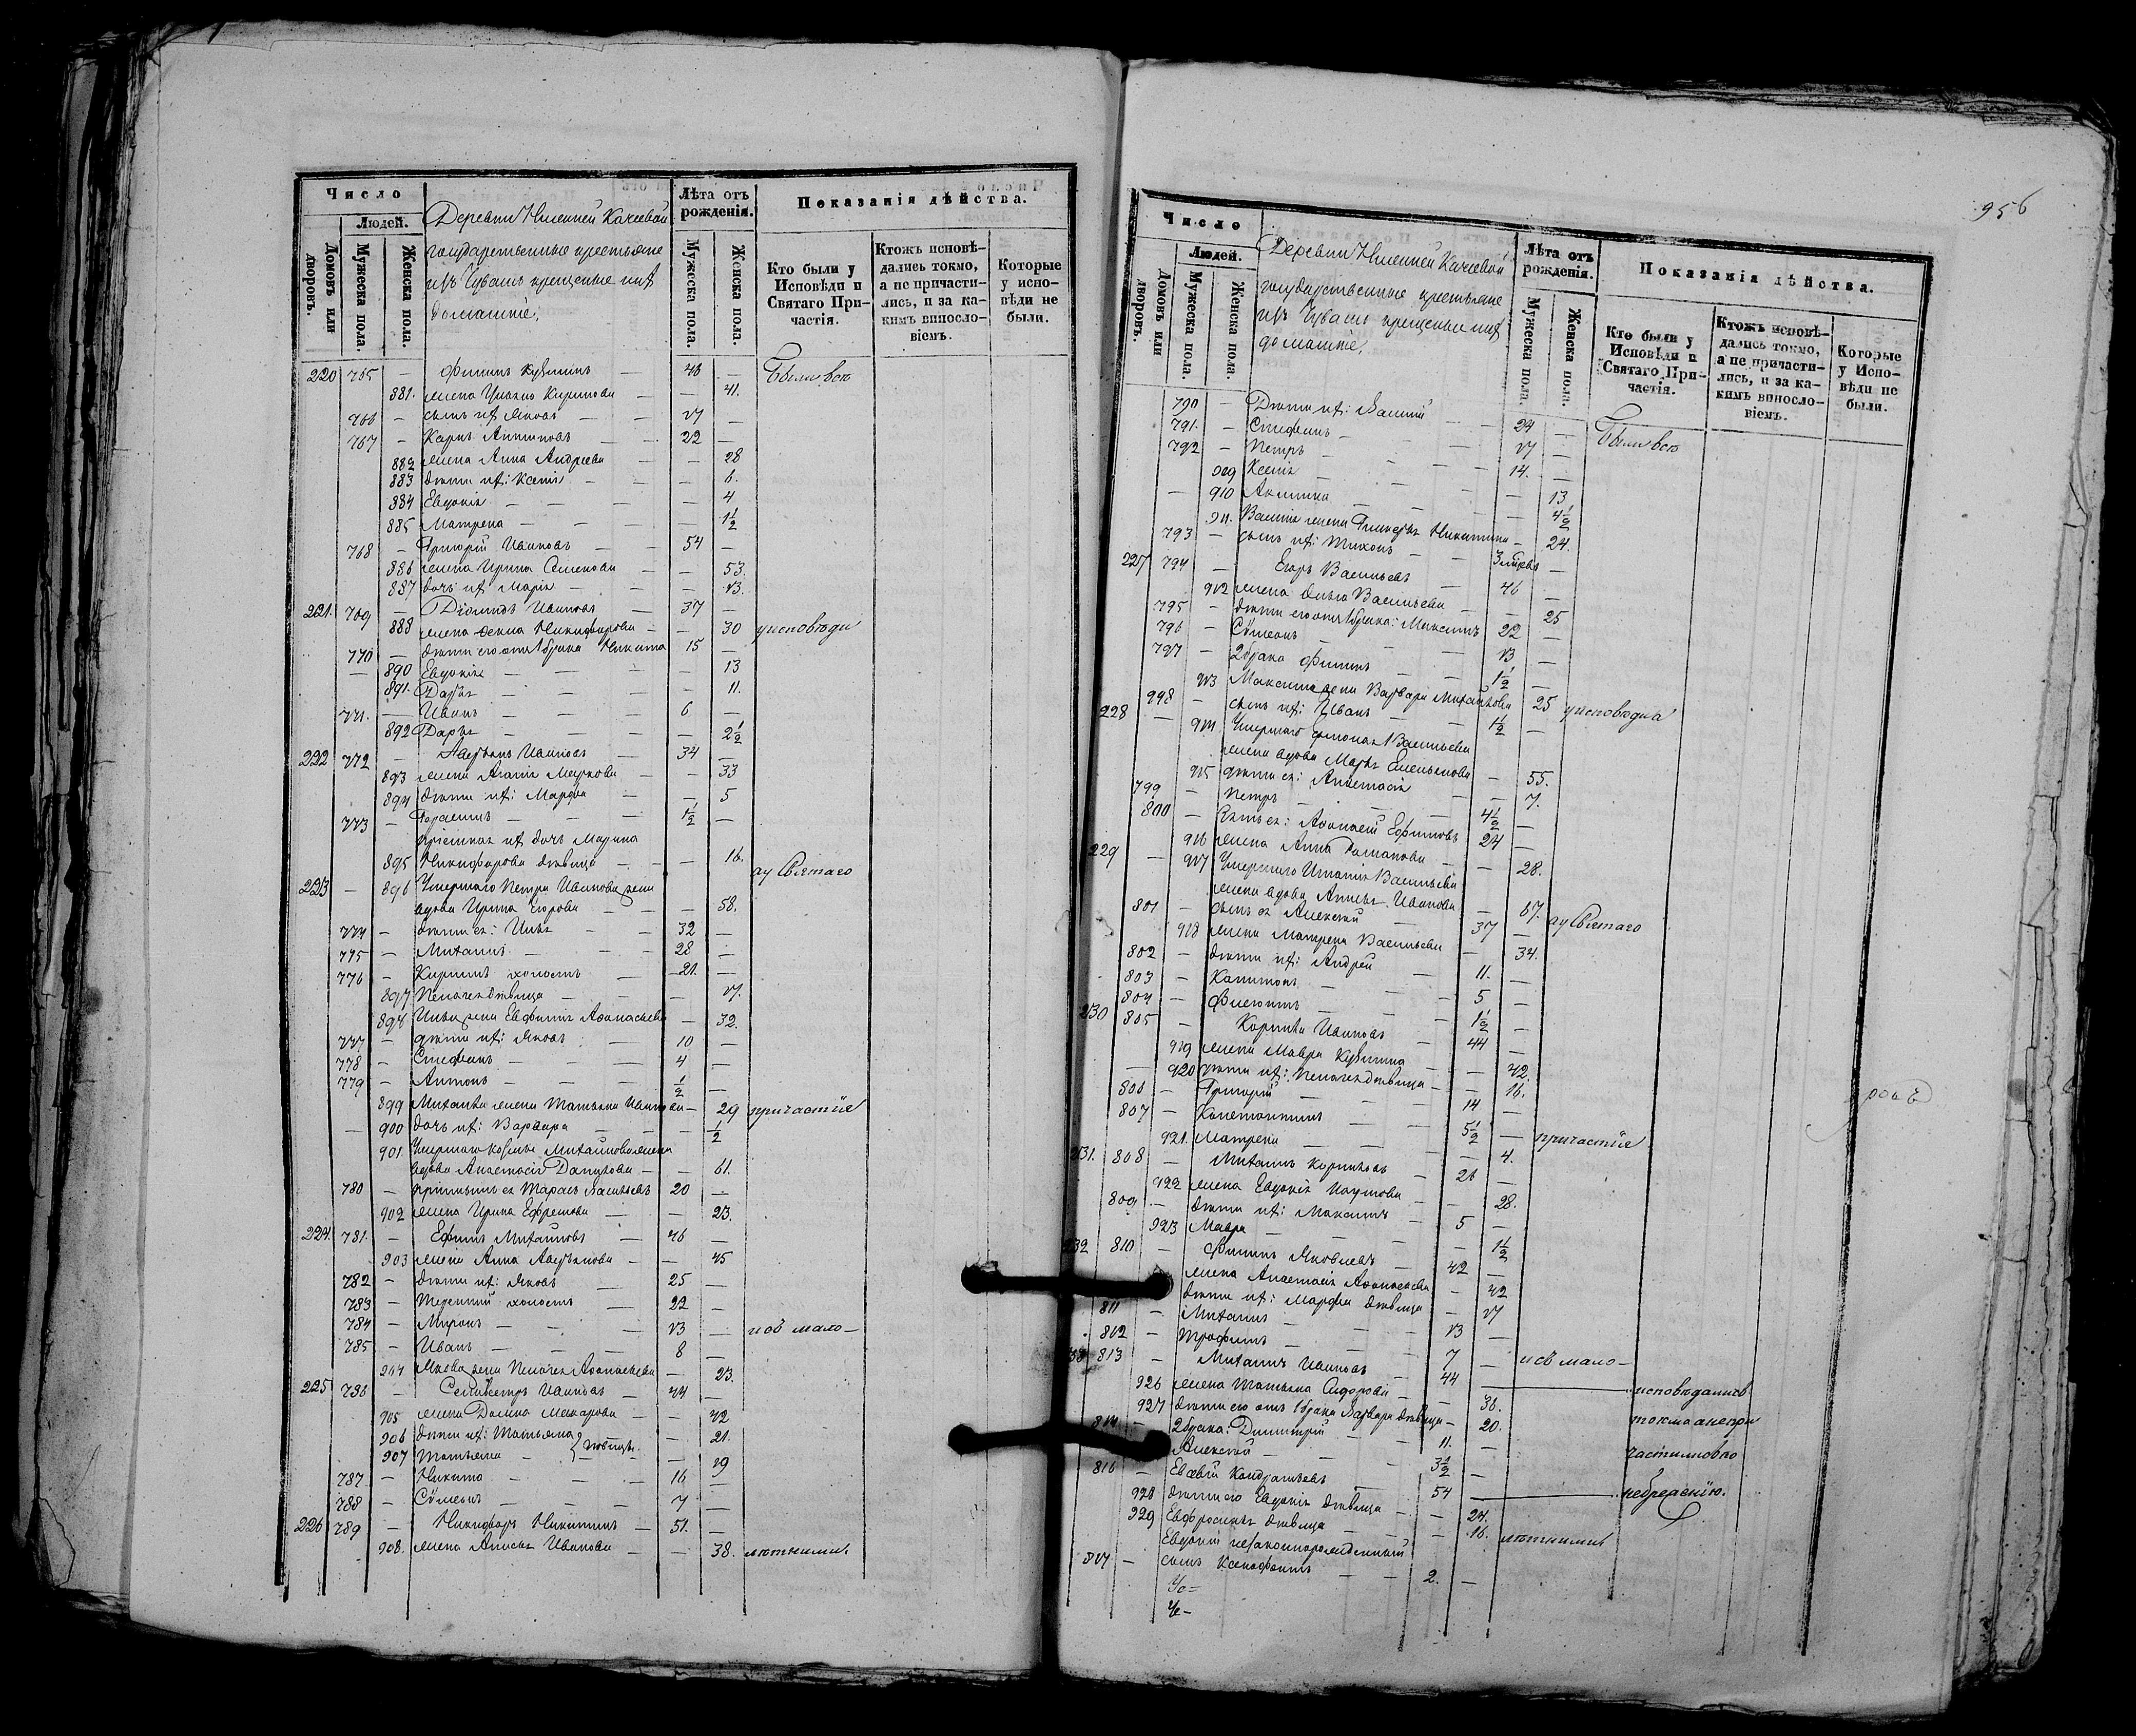 Число
Людей.
Домовъ или дворовъ.
Мужеска пола.
Женска пола.
Деревни Нижней Качеевой
государственные крестьяне
изъ Чувашъ крещеные ихъ
домашніе.
Лѣта отъ рожденія.
Мужеска пола.
Женска пола.
Показанія дѣйства.
Кто были у Исповѣди и Святаго Причастія.
Ктожъ исповѣдались токмо, а не причастились, и за какимъ винословіемъ.
Которые у исповѣди не были.
220 765 — Филипъ Кузминъ — 46 — Были всѣ
881. жена Ульяна Кирилова — — 41.
766 — сынъ ихъ Яковъ — 17 —
767 — Карпъ Антиповъ — 22 —
882 жена Анна Андреева — — 28
883 дѣти ихъ: Ксенія — — 6.
884 Евдокія — — 4
885 Матрена — — 1½
768 — Григорій Ивановъ — 54 —
886 жена Ирина Семенова — — 53.
887 дочь ихъ Марія — — 13.
221. 769 — Діомидъ Ивановъ — 37 —
888 жена Ѳекла Никифорова — — 30 у исповѣди
770 — дѣти его отъ 1 брака Никита 15 —
— 890 Евдокія — — 13
891. Дарья — — 11.
771. — Иванъ — 6 —
892 Дарья — — 2½
222 772 — Ивановъ — 34 —
893 жена Агапія Маркова — — 33
894 дѣти ихъ: Марфа — — 5
773 — Герасимъ — 1½ —
пріемная ихъ дочь Марина
895 Никифорова дѣвица — — 16.
и у Святаго
223 — 896 Умершаго Петра Иванова жена
вдова Ирина Егорова — — 58.
774 — дѣти ея: Илья — 32 —
775 — Михаилъ — 28 —
776 — Кирилъ холостъ — 21. —
897 Пелагея дѣвица — — 17.
898 Ильи жена Евфимія Аѳанасьева — 32.
777 — дѣти ихъ: Яковъ — 10 —
778 — Стефанъ — 4 —
779 — Антонъ — ½ —
899 Михаила жена Татьяна — 29 причастія
— 900 дочь ихъ: Варвара — — ½
901 Умершаго Козьмы Михайлова жена
вдова Анастасія Данилова — — 61.
780 — пріемышъ ея Тарасъ Васильевъ 20 —
902 жена Ирина Ефремова — — 23.
224. 781. — Ефимъ Михайловъ — 46 —
903 жена Анна — — 45
782 — дѣти ихъ: Яковъ — 25 —
783 — Терентій холостъ — 22 —
784 — Миронъ — 13 — и съ мало-
785 — Иванъ — 8 —
904 Якова жена Пелагея Аѳанасьева — 23.
225 786 — Селивестръ Ивановъ — 44 —
905 жена Домна Макарова — — 42
906 дѣти ихъ: Татьяна — 21.
907 Татьяна } дѣвицы — — 19
787 — Никита — 16 —
788 — Сѵмеонъ — 7 —
226 789 — Никифоръ Никитинъ — 51. —
908. жена Анисья Иванова — — 38. лѣтними.
956
Число
Людей.
Домовъ или дворовъ.
Мужеска пола.
Женска пола.
Деревни Нижней Качеевой
государственные крестьяне
изъ Чувашъ крещеные ихъ
домашніе.
Лѣта отъ рожденія.
Мужеска пола.
Женска пола.
Показанія дѣйства.
Кто были у Исповѣди и Святаго Причастія.
Ктожъ исповѣдались токмо, а не причастились, и за какимъ винословіемъ.
Которые у Исповѣди не были.
790 — Дѣти ихъ: Василій — 24 — Были всѣ
791. — Стефанъ — 17 —
792 — Петръ — 14. —
909 Ксенія — — 13
— 910 Акилина — — 4½
911. Василія жена Гликерія Никитина — 24.
793 — сынъ ихъ Тихонъ —
227 794 — Егоръ Васильевъ — 46 —
912 жена Ольга Васильева — — 25
795 — дѣти его отъ 1 брака: Максимъ 22 —
796 — Сѵмеонъ — 13 —
797 — 2 брака Филипъ — 1½ —
913 Максима жена Варвара Михайлова 25 у исповѣди
798 — сынъ ихъ: Иванъ — 1½ —
228 — 914 Умершаго Васильева
жена вдова Марья Емельянова — 55.
915 дѣти ея: Анастасія — — 7.
799 — Петръ — 4½ —
800 — Зять ея: Аѳанасій Ефимовъ 24 —
916 жена Анна Романова — — 28.
229 — 917 Умершаго Игнатія Васильева
жена вдова Анисья Иванова — 67. и у Святаго
801 — сынъ ея Алексѣй — 37 —
918 жена Матрена Васильева — 34.
802 — дѣти ихъ: Андрей — 11. —
803 — Капитонъ — 5 —
804 — — 1½ —
230 805 — Корнилій Ивановъ — 44 —
919 жена Мавра Кузмина — — 42.
— 920 дѣти ихъ: Пелагея дѣвица — — 16.
806 — Григорій — 14 —
807 — Константинъ — 5½ — причастія
921. Матрена — — 4.
231. 808 — Михаилъ Корниловъ — 26 —
922 жена Евдокія Наумова — — 28.
809 — дѣти ихъ: Максимъ — 5 —
923 Мавра — — 1½
232 810 — Филипъ Яковлевъ — 42 —
жена Анастасія Аѳанасьева — 42
дѣти ихъ: Марфа дѣвица — 17
811 — Михаилъ — 13 —
812 — Трофимъ — 7 — и съ мало-
813 — Михаилъ Ивановъ — 44 — исповѣдались
926 жена Татьяна Сидорова — — 36.
927 дѣти его отъ 1 брака Варвара дѣвица — 20. токмо а не при
814 — 2 брака: Димитрій — 11. —
Алексѣй — 3½ — частились по
816 — Евсевій Кондратьевъ — 54 — небреженію.
928 дѣти его Евдокія дѣвица — — 24.
929 Евфросинья дѣвица — — 16. лѣтними
Евдокіи незаконнорожденный
817 — сынъ Ксенофонтъ — 2. —
Ус=
Че-